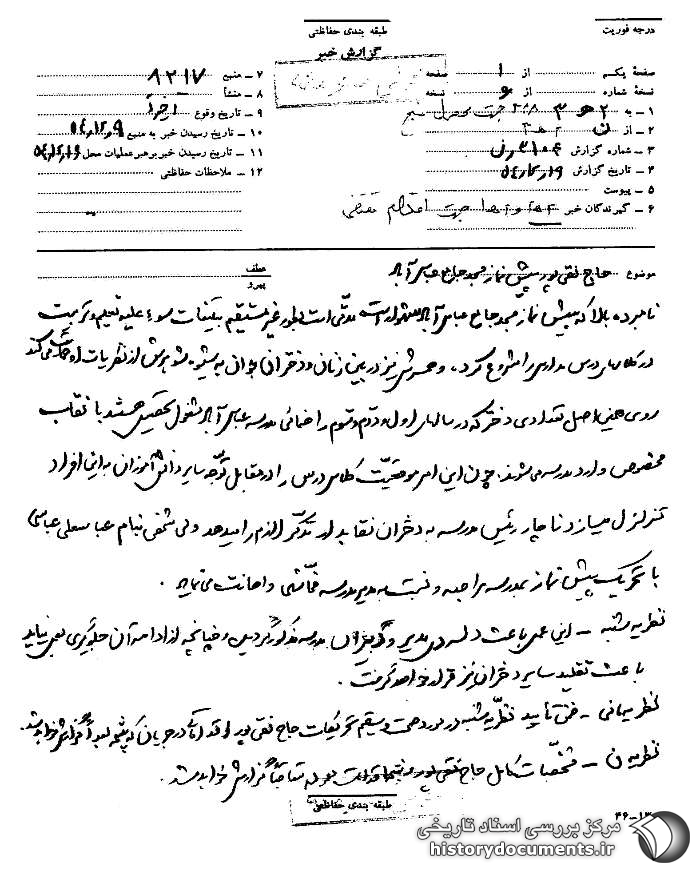 درجه فوریت
طبقه بندی حفاظتی
گزارش خبر
صفحهٔ یکم از ۱ صفحه
نسخهٔ شماره از ۶ نسخه
۱ – به ۲ ه ۳
۲ – از ن
۳ – شماره گزارش
۴ – تاریخ گزارش ۵۴٫۱۲٫۱۹
۵ – پیوست
۶ – گیرندگان خبر جهت اقدام مقتضی
۷ – منبع ۸۲۱۷
۸ – منشأ
۹ – تاریخ وقوع اخیراً
۱۰ – تاریخ رسیدن خبر به منبع
۱۱ – تاریخ رسیدن خبر برهبر عملیات محل
۱۲ – ملاحظات حفاظتی
موضوع حاج نقی پور پیش نماز مسجد جامع عباس آباد
عطف
پیرو
نامبرده بالا که پیش نماز مسجد جامع عباس آباد مدتی است بطور غیر مستقیم تبلیغات سوء علیه تعلیم و تربیت
در کلاسهای درس مدارس را شروع کرده و همسرش نیز در بین زنان و دختران جوان به پشتیبانی شوهرش از نظریات او حمایت می کند
روی همین اصل تعدادی دختر که در سالهای اول و دوم و سوم راهنمائی مدرسه عباس آباد مشغول تحصیل هستند با نقاب
مخصوص وارد مدرسه می شوند. چون این امر موقعیت کلاس درس را در مقابل توجه سایر دانش آموزان به این افراد
متزلزل میسازد ناچار رئیس مدرسه به دختران نقابدار تذکر لازم را میدهد ولی شخصی بنام عباسعلی عباسی
با تحریک پیش نماز بمدرسه مراجعه و نسبت به مدیر مدرسه فحاشی و اهانت می نماید.
نظریه شنبه – این عمل باعث دلسردی مدیر و دبیران مدرسه مذکور گردیده و چنانچه از ادامه آن جلوگیری بعمل نیاید
باعث تقلید سایر دختران نیز قرار خواهد گرفت.
ضمن تأیید نظریه شنبه در مورد تحریکات حاج نقی پور اقدامات در جریان که نتیجه بعداً گزارش خواهد شد.
نظریه ن – مشخصات کامل حاج نقی پور و نتیجه اقدامات متعاقباً گزارش خواهد شد.
طبقه بندی حفاظتی
۱۳–۴۶
مرکز بررسی اسناد تاریخی
historydocuments.ir